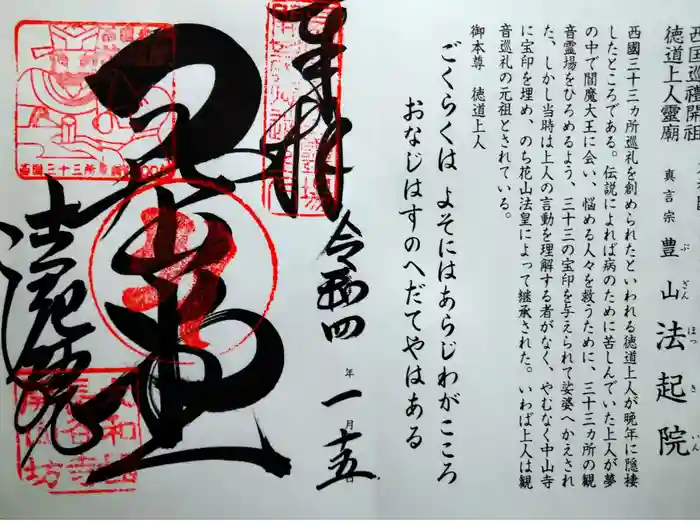 徳道上人靈廟
真言宗 豊山法起院
ぶざん ほっ いん
西國三十三カ所巡礼を創められたといわれる徳道上人が晩年に隠棲
したところである。伝説によれば病のために苦しんでいた上人が夢
の中で閻魔大王に会い、悩める人々を救うために、三十三カ所の観
音霊場をひろめるよう、三十三の宝印を与えられて娑婆へかえされ
た、しかし当時は上人の言動を理解する者がなく、やむなく中山寺
に宝印を埋め、のち花山法皇によって継承された。いわば上人は観
音巡礼の元祖とされている。
御本尊 徳道上人
ごくらくは よそにはあらじわがこころ
おなじはすのへだてやはある
奉拝
令和四年一月十五日
法起院